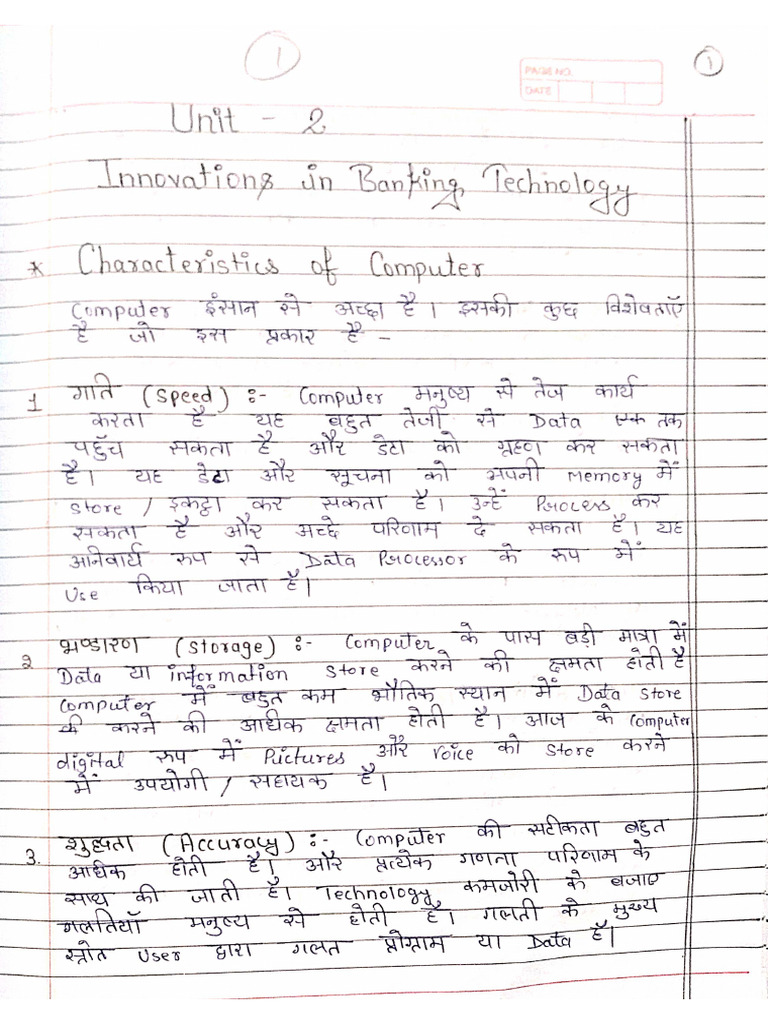 1
1
PAGE NO.
DATE
Unit - 2
Innovations in Banking Technology
* Characteristics of Computer
Computer इंसान से अच्छा है। इसकी कुछ विशेषताएँ
है जो इस प्रकार है -
1 गति (Speed) :- Computer मनुष्य से तेज कार्य
करता है यह बहुत तेजी से Data एक तक
पहुँच सकता है और डेटा को ग्रहण कर सकता
है। यह डेटा और सूचना को अपनी Memory में
Store / इकट्ठा कर सकता है। उन्हें Process कर
सकता है और अच्छे परिणाम दे सकता है। यह
अनिवार्य रूप से Data Processor के रूप में
Use किया जाता है।
2 भण्डारण (Storage) :- Computer के पास बड़ी मात्रा में
Data या information Store करने की क्षमता होती है
Computer में बहुत कम भौतिक स्थान में Data Store
करने की अधिक क्षमता होती है। आज के Computer
digital रूप में Pictures और Voice को Store करने
में उपयोगी / सहायक है।
3. शुद्धता (Accuracy) :- Computer की सटीकता बहुत
अधिक होती है। और प्रत्येक गणता परिणाम के
साथ की जाती है। Technology कमजोरी के बजाए
गलतियाँ मनुष्य से होती है। गलती के मुख्य
स्त्रोत User द्वारा गलत प्रोग्राम या Data हैं।